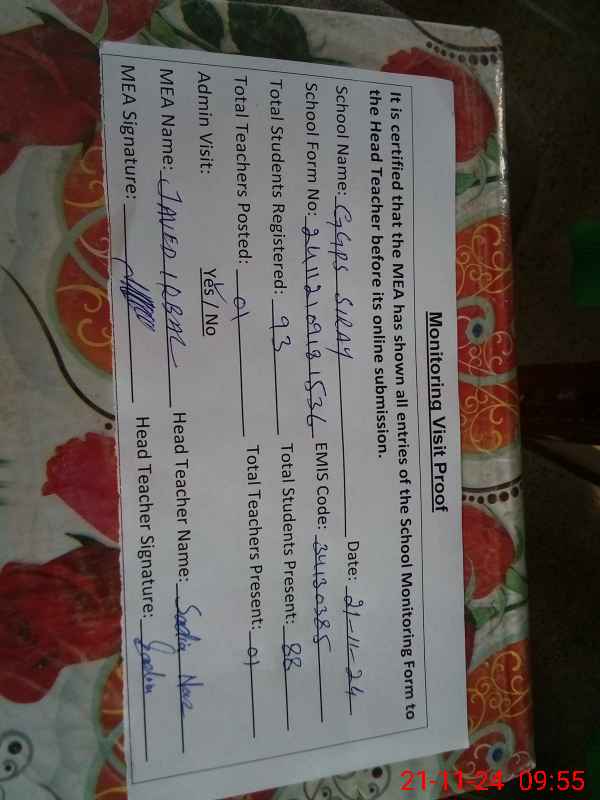 Monitoring Visit Proof
It is certified that the MEA has shown all entries of the School Monitoring Form to
the Head Teacher before its online submission.
School Name: GGPS SIRAY Date: 21-11-24
School Form No: 24112109181536 EMIS Code: 34130385
Total Students Registered: 93 Total Students Present: 88
Total Teachers Posted: 01 Total Teachers Present: 01
Admin Visit: Yes / No
MEA Name: JAVED IQBAL Head Teacher Name: Sadia Naz
MEA Signature: Head Teacher Signature: Sadia
21-11-24 09:55